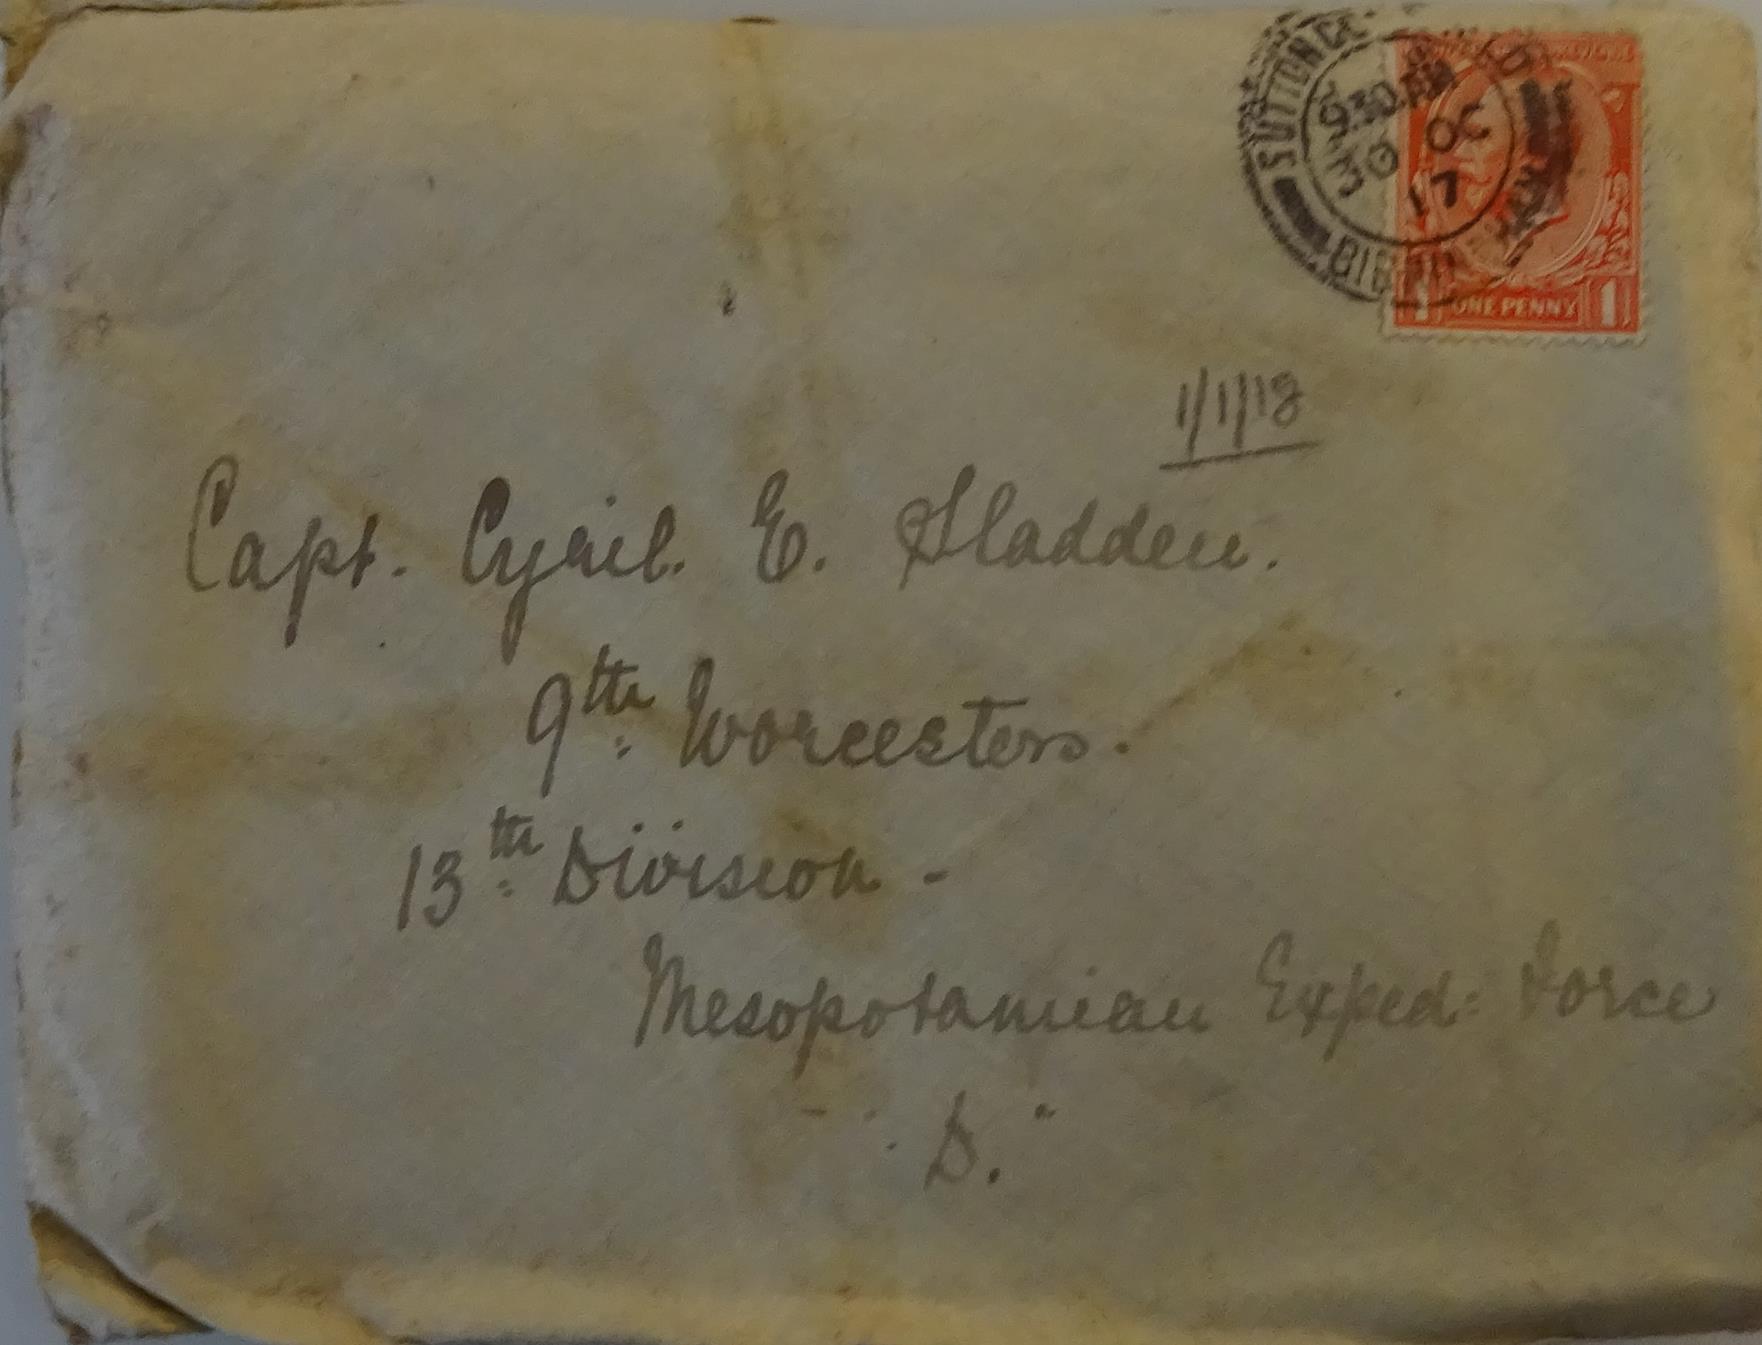 SUTTON
9.30 AM
OC
17
BIRM
ONE PENNY 1
1/1/18
Capt. Cyril. E. Sladden.
9th Worcesters.
13th Division -
Mesopotamian Exped: Force
"D."